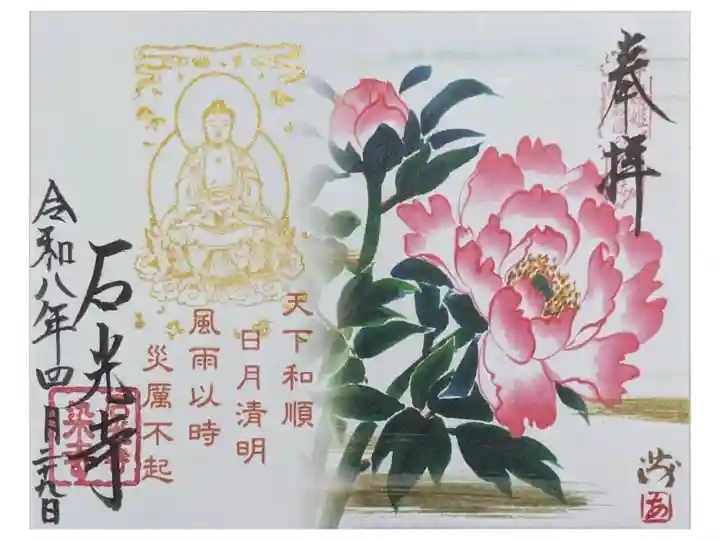 奉拝
天下和順
日月清明
風雨以時
災厲不起
石光寺
令和八年四月二十九日